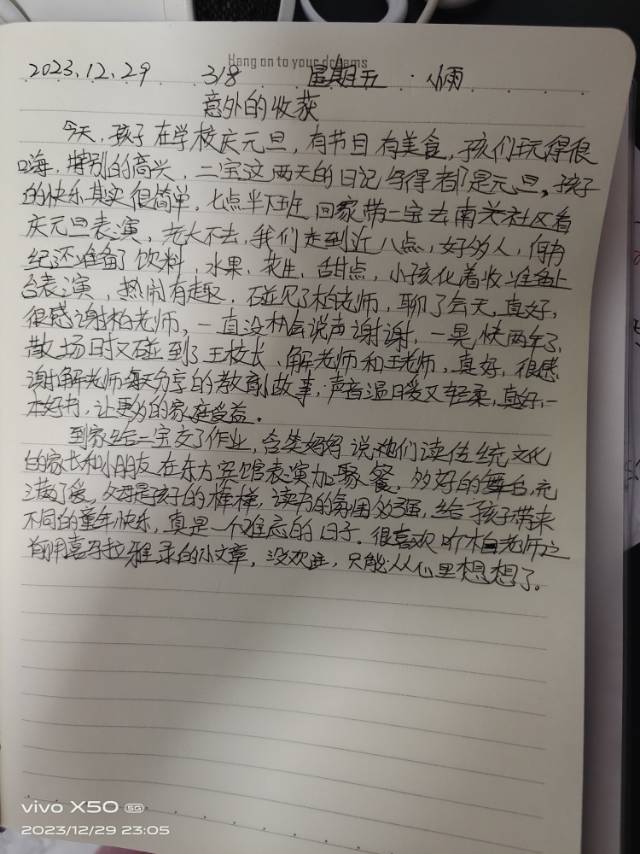 Hang on to your dreams
2023.12.29 318 星期五 小雨
意外的收获
今天,孩子在学校庆元旦,有节目有美食,孩们玩得很
嗨,特别的高兴,二宝这两天的日记写得都是元旦,孩子
的快乐其实很简单,七点半下班回家带二宝去南关社区看
庆元旦表演,老大不去,我们走到近八点,好多人,何书
纪还准备了饮料,水果,花生,甜点,小孩化着妆准备上
台表演,热闹有趣,碰见了柏老师,聊了会天,真好,
很感谢柏老师,一直没机会说声谢谢,一晃快两年了,
散场时又碰到了王校长、解老师和王老师,真好,很感
谢解老师每天分享的教育故事,声音温暖又轻柔,真好,一
本好书,让更多的家庭受益。
到家给二宝交了作业,含笑妈妈说她们读传统文化
的家长和小朋友在东方宾馆表演加聚餐,多好的舞台,充
满了爱,父母是孩子的榜样,读书的氛围多强,给孩子带来
不同的童年快乐,真是一个难忘的日子。很喜欢听柏老师之
前用喜马拉雅录的小文章,没欢进,只能从心里想想了。
vivo X50 5G
2023/12/29 23:05